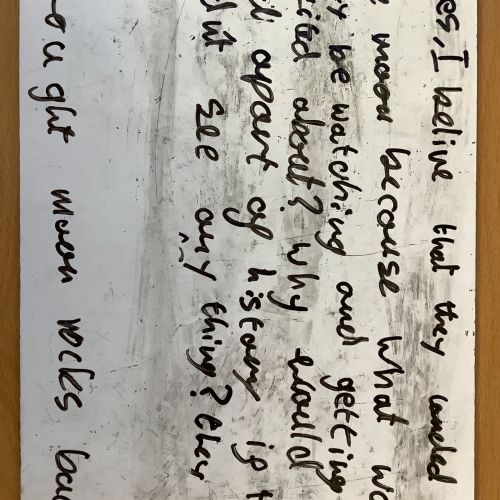 es, I belive that they landed
moon because what wo
be watching and getting
cited about? why would
apart of history if t
dnt see any thing? they
ought moon rocks bac